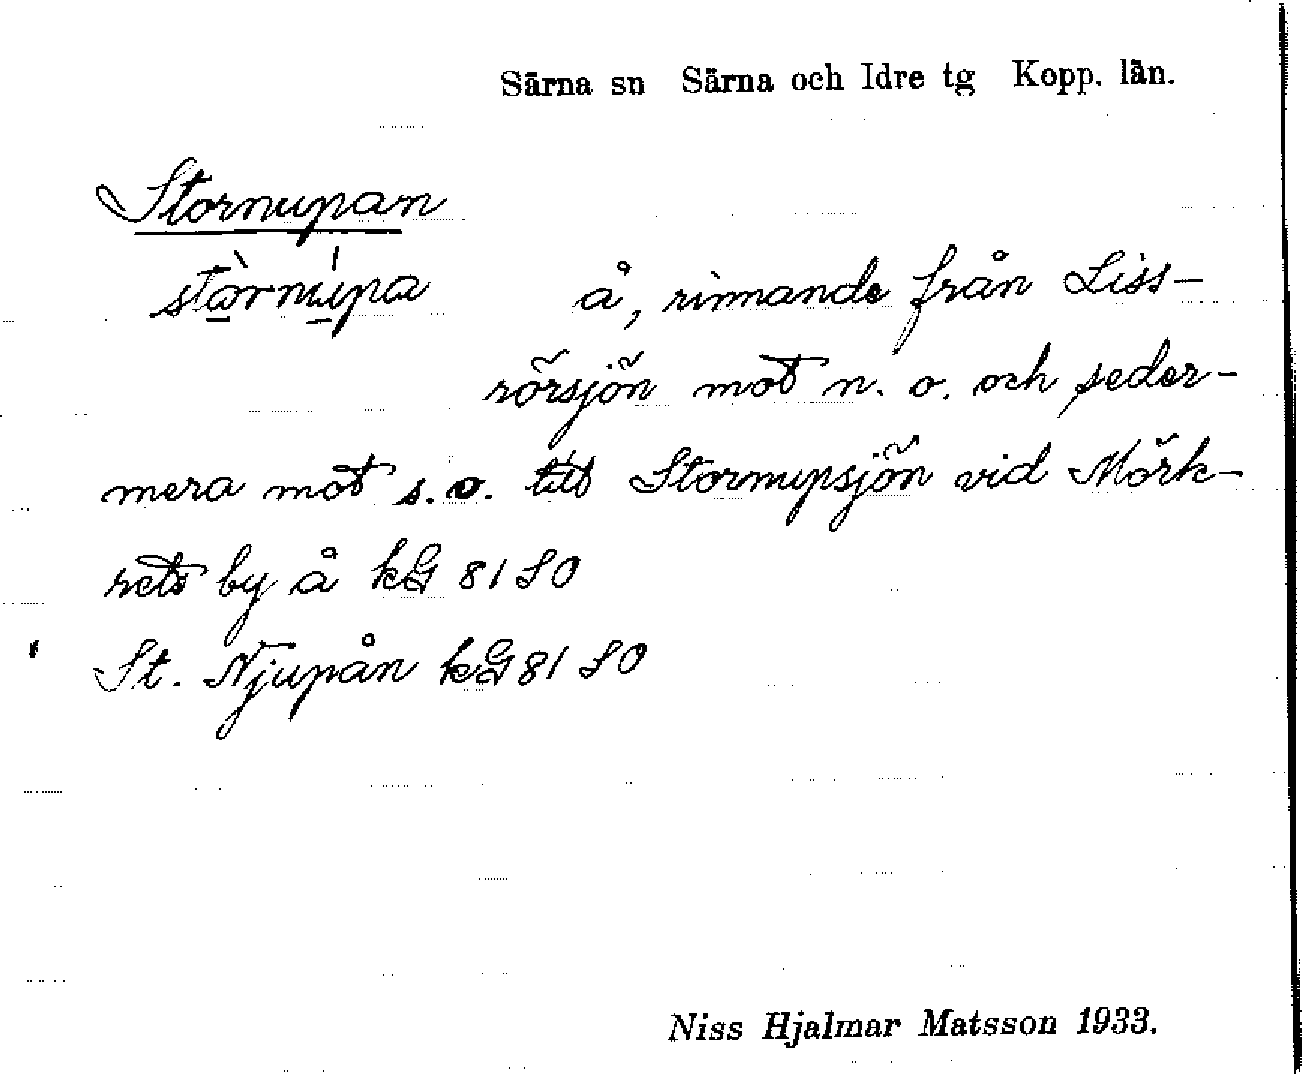 Särna sn Särna och Idre tg Kopp. län.
Stornupan
stòrnúpa å, rinnande från Liss-
rörsjön mot n. o. och peder-
mera mot s. o. till Stornupsjön vid Mörk-
rets by å kG 81 SO
St. Njupån kG 81 SO
Niss Hjalmar Matsson 1933.